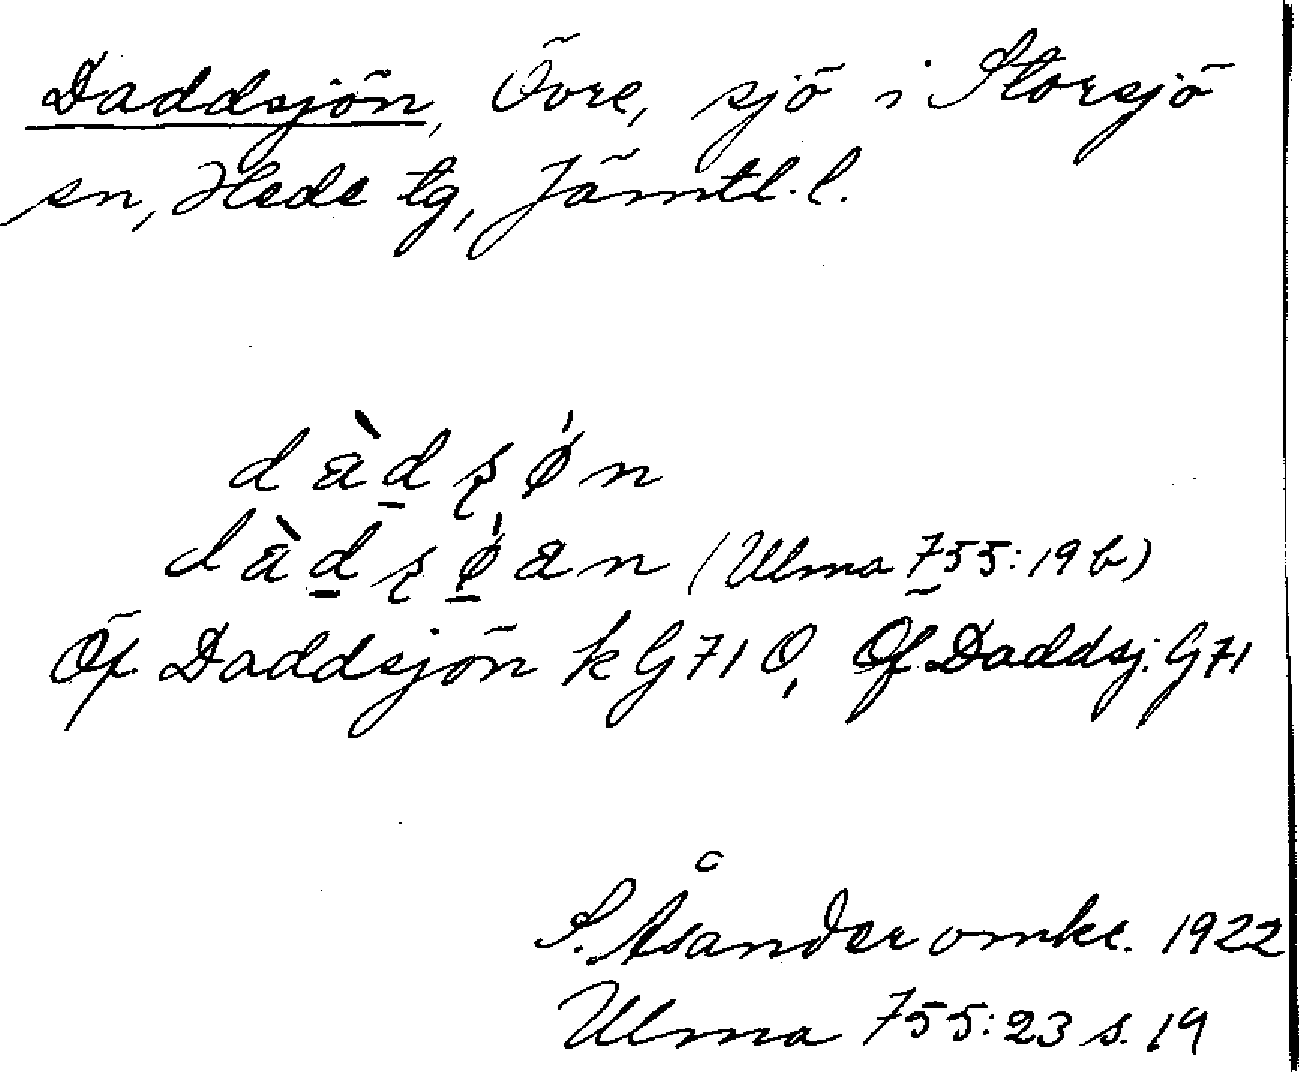 Daddsjön, Övre, sjö i Storsjö
sn, Hede tg, Jämtl. l.
dàd̲ʂǿn
dàd̲ʂǿ̲an (Ulma 755:19 b)
Öf. Daddsjön k G 71 Ö, Öf. Daddsj. G 71
S. Åsander omkr. 1922
Ulma 755:23 s. 19